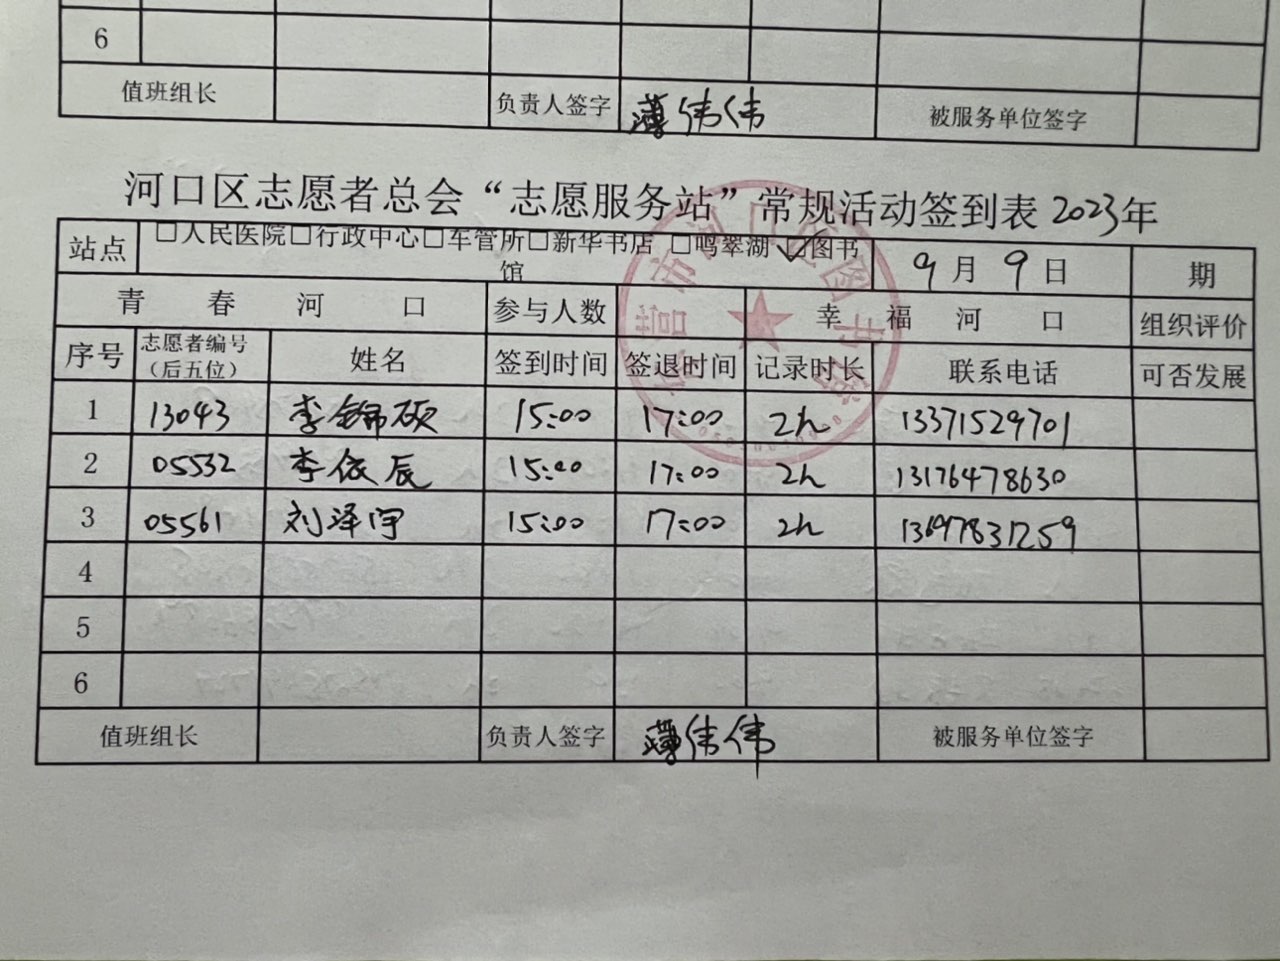 6
值班组长 负责人签字 薄伟伟 被服务单位签字
河口区志愿者总会“志愿服务站”常规活动签到表2023年
站点 □人民医院□行政中心□车管所□新华书店 □鸣翠湖 ☑图书馆 9月9日 期
青春河口 参与人数 幸福河口 组织评价
序号 志愿者编号（后五位） 姓名 签到时间 签退时间 记录时长 联系电话 可否发展
1 13043 李锦硕 15:00 17:00 2h 13371529701
2 05532 李依辰 15:00 17:00 2h 13176478630
3 05561 刘泽宇 15:00 17:00 2h
4
5
6
值班组长 负责人签字 薄伟伟 被服务单位签字